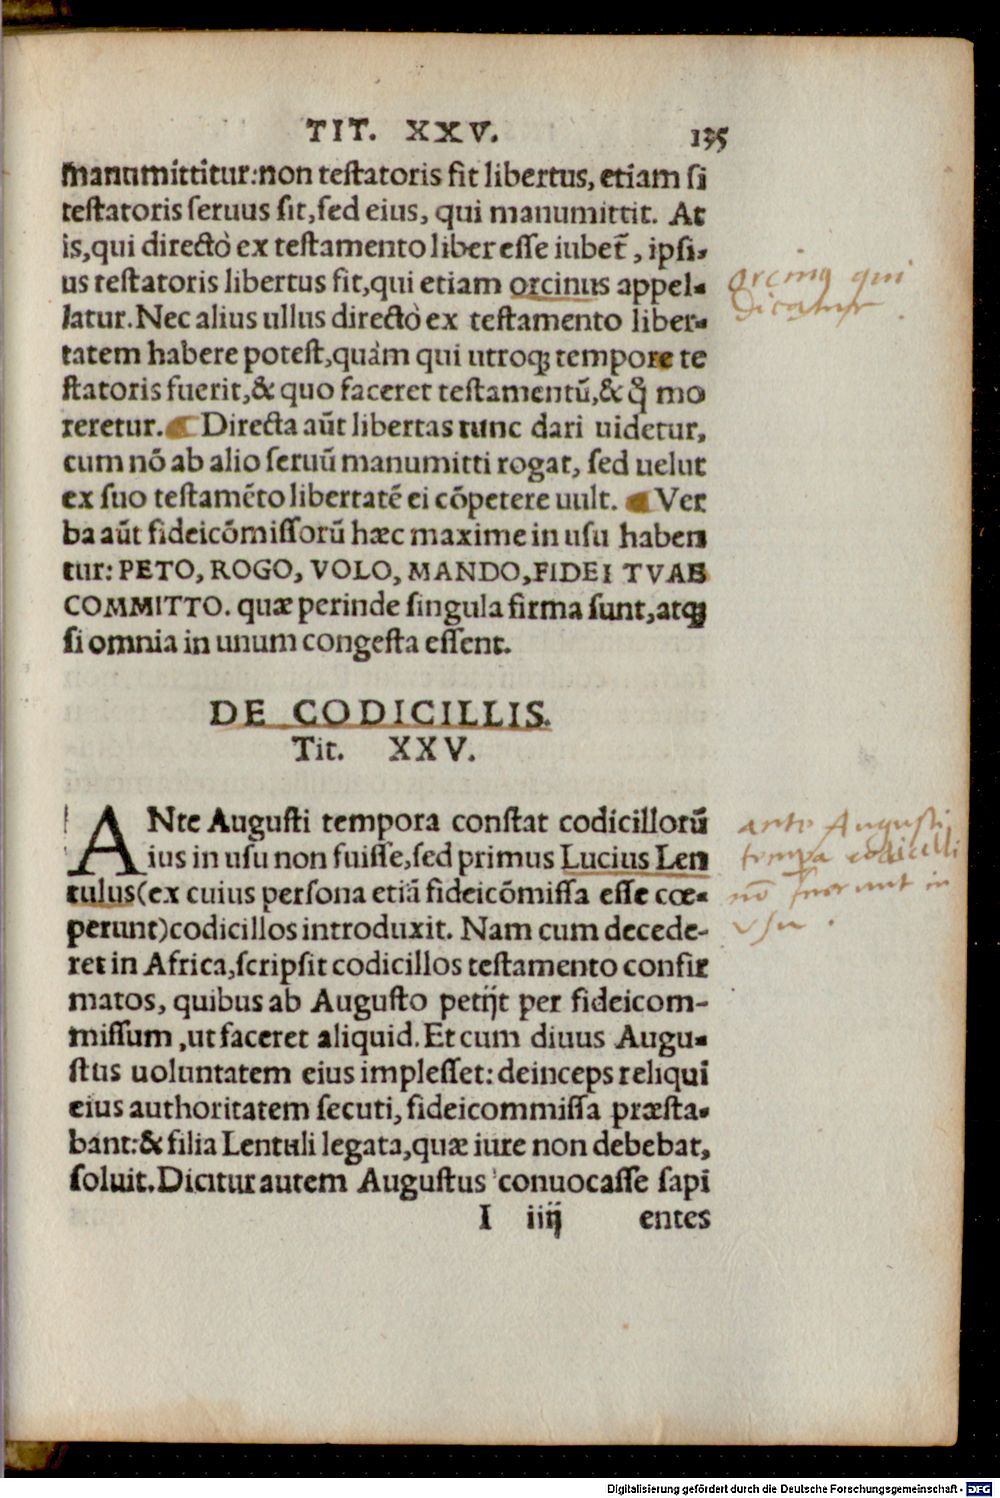 TIT. XXV. 135
manumittitur: non testatoris fit libertus, etiam si
testatoris seruus sit, sed eius, qui manumittit. At
is, qui directò ex testamento liber esse iubet̃, ipsi-
us testatoris libertus fit, qui etiam orcinus appel-
latur. Nec alius ullus directò ex testamento liber-
tatem habere potest, quàm qui utroq; tempore te
statoris fuerit, & quo faceret testamentũ, & q̃ mo
reretur. Directa aũt libertas tunc dari uidetur,
cum nõ ab alio seruũ manumitti rogat, sed uelut
ex suo testamẽto libertatẽ ei cõpetere uult. Ver
ba aũt fideicõmissorũ hæc maxime in usu haben
tur: PETO, ROGO, VOLO, MANDO, FIDEI TVAE
COMMITTO. quæ perinde singula firma sunt, atq;
si omnia in unum congesta essent.
orcinus qui
dicatur.
DE CODICILLIS.
Tit. XXV.
ANte Augusti tempora constat codicillorũ
ius in usu non fuisse, sed primus Lucius Len
tulus (ex cuius persona etiã fideicõmissa esse cœ-
perunt) codicillos introduxit. Nam cum decede-
ret in Africa, scripsit codicillos testamento confir
matos, quibus ab Augusto petijt per fideicom-
missum, ut faceret aliquid. Et cum diuus Augu-
stus uoluntatem eius implesset: deinceps reliqui
eius authoritatem secuti, fideicommissa præsta-
bant: & filia Lentuli legata, quæ iure non debebat,
soluit. Dicitur autem Augustus conuocasse sapi
I iiij entes
ante Augusti
tempa codicilli
nõ fuerunt in
vsu.
Digitalisierung gefördert durch die Deutsche Forschungsgemeinschaft - DFG